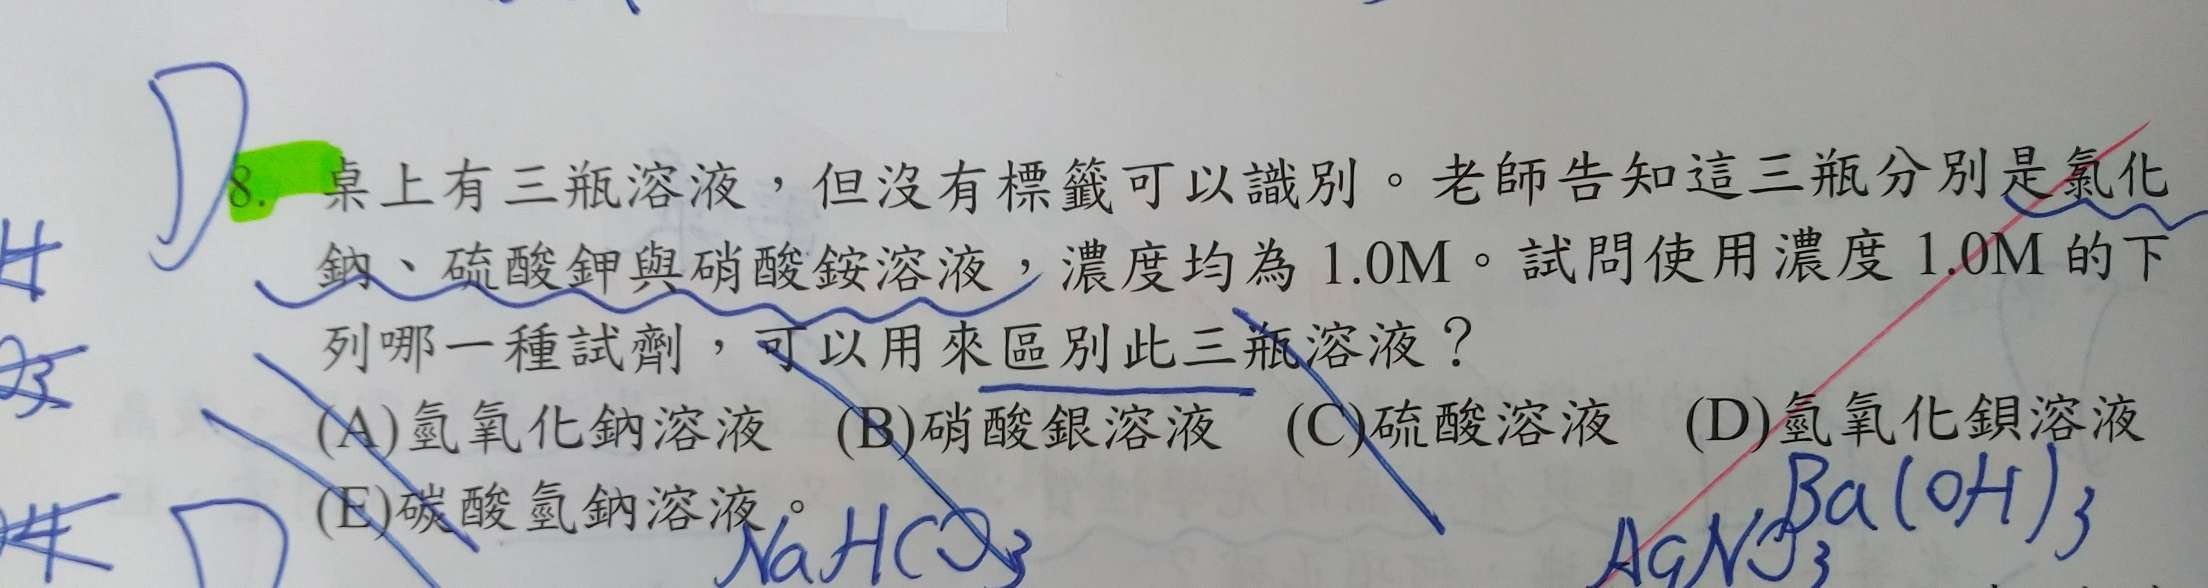 D
8. 桌上有三瓶溶液，但沒有標籤可以識別。老師告知這三瓶分別是氯化
鈉、硫酸鉀與硝酸銨溶液，濃度均為 1.0M。試問使用濃度 1.0M 的下
列哪一種試劑，可以用來區別此三瓶溶液？
(A)氫氧化鈉溶液 (B)硝酸銀溶液 (C)硫酸溶液 (D)氫氧化鋇溶液
(E)碳酸氫鈉溶液。
Ba(OH)3
NaHCO3
AgNO3